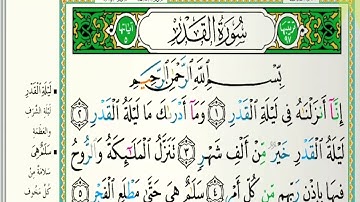 سُورَةُ الْقَدْرِ
بِسْمِ اللَّهِ الرَّحْمَٰنِ الرَّحِيمِ
إِنَّآ أَنزَلْنَٰهُ فِى لَيْلَةِ الْقَدْرِ ١ وَمَآ أَدْرَىٰكَ مَا لَيْلَةُ الْقَدْرِ ٢
لَيْلَةُ الْقَدْرِ خَيْرٌ مِّنْ أَلْفِ شَهْرٍ ٣ تَنَزَّلُ الْمَلَٰٓئِكَةُ وَالرُّوحُ
فِيهَا بِإِذْنِ رَبِّهِم مِّن كُلِّ أَمْرٍ ٤ سَلَٰمٌ هِىَ حَتَّىٰ مَطْلَعِ الْفَجْرِ ٥
لَيْلَةِ الْقَدْرِ
لَيْلَةِ الشَّرَفِ
وَالعَظَمَةِ
سَلَٰمٌ هِىَ
سَلَامَةٌ مِنْ
كُلِّ مَخُوفٍ